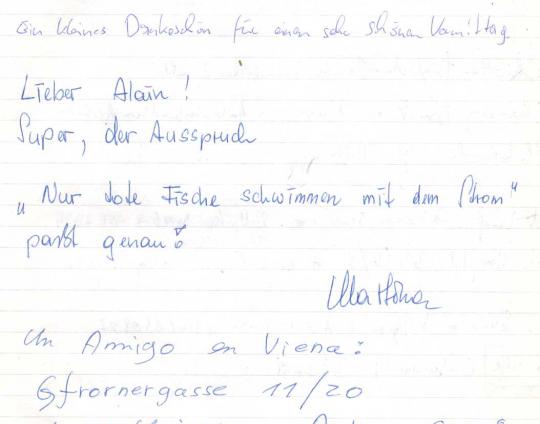 Ein kleines Dankeschön für einen sehr schönen Vormittag
Lieber Alain !
Super, der Ausspruch
„Nur tote Fische schwimmen mit dem Strom“
paßt genau!
Un Amigo en Viena:
Gfrornergasse 11/20